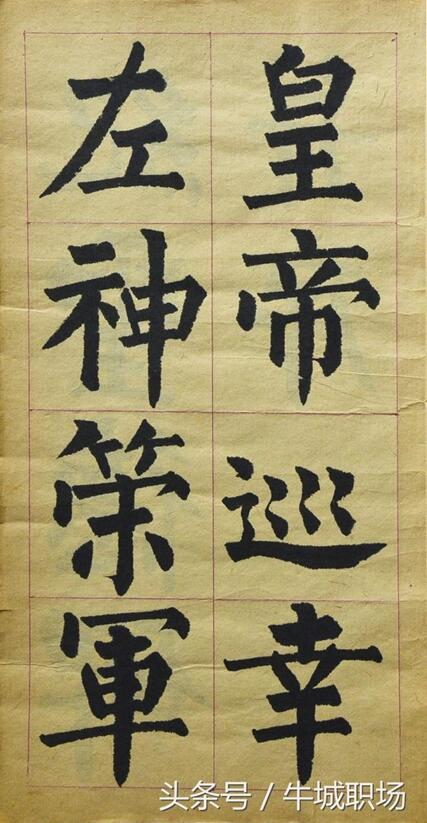 皇帝巡幸
左神策軍
头条号 / 牛城职场